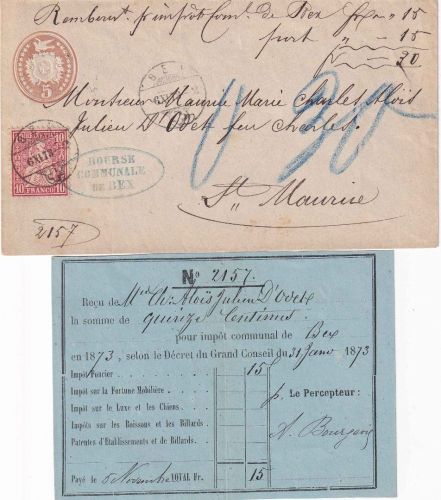 Rembours.t p.r impôt Com.l de Bex frs. " 15
port " 15
30
5
Monsieur Maurice Marie Charles Aloïs
Julien D'Odet feu Charles.
30
St Maurice
BEX
6 XI 73
HELVETIA
10 FRANCO 10
BOURSE
COMMUNALE
DE BEX
2157
No 2157.
Reçu de Mr. Ch. Aloïs Julien D'Odet
la somme de quinze Centimes
pour impôt communal de Bex
en 1873, selon le Décret du Grand Conseil du 31 Janv. 1873
Impôt Foncier 15
Impôt sur la Fortune Mobilière.
Impôt sur le Luxe et les Chiens.
Impôts sur les Boissons et les Billards.
Patentes d'Etablissements et de Billards.
p. Le Percepteur:
A. Bourgeois
Payé le 5 Novembre TOTAL Fr. 15